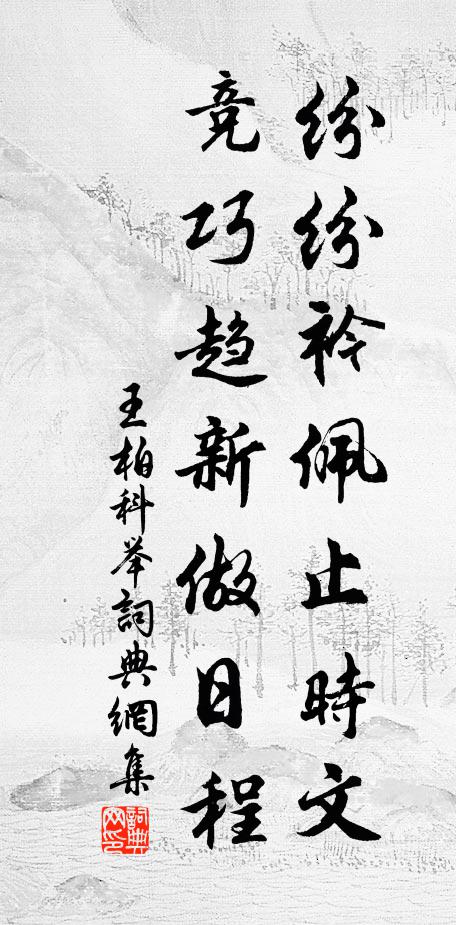 纷纷衿佩止時文
竞巧趋新做日程
王柏科举詞典網集
詞典网印